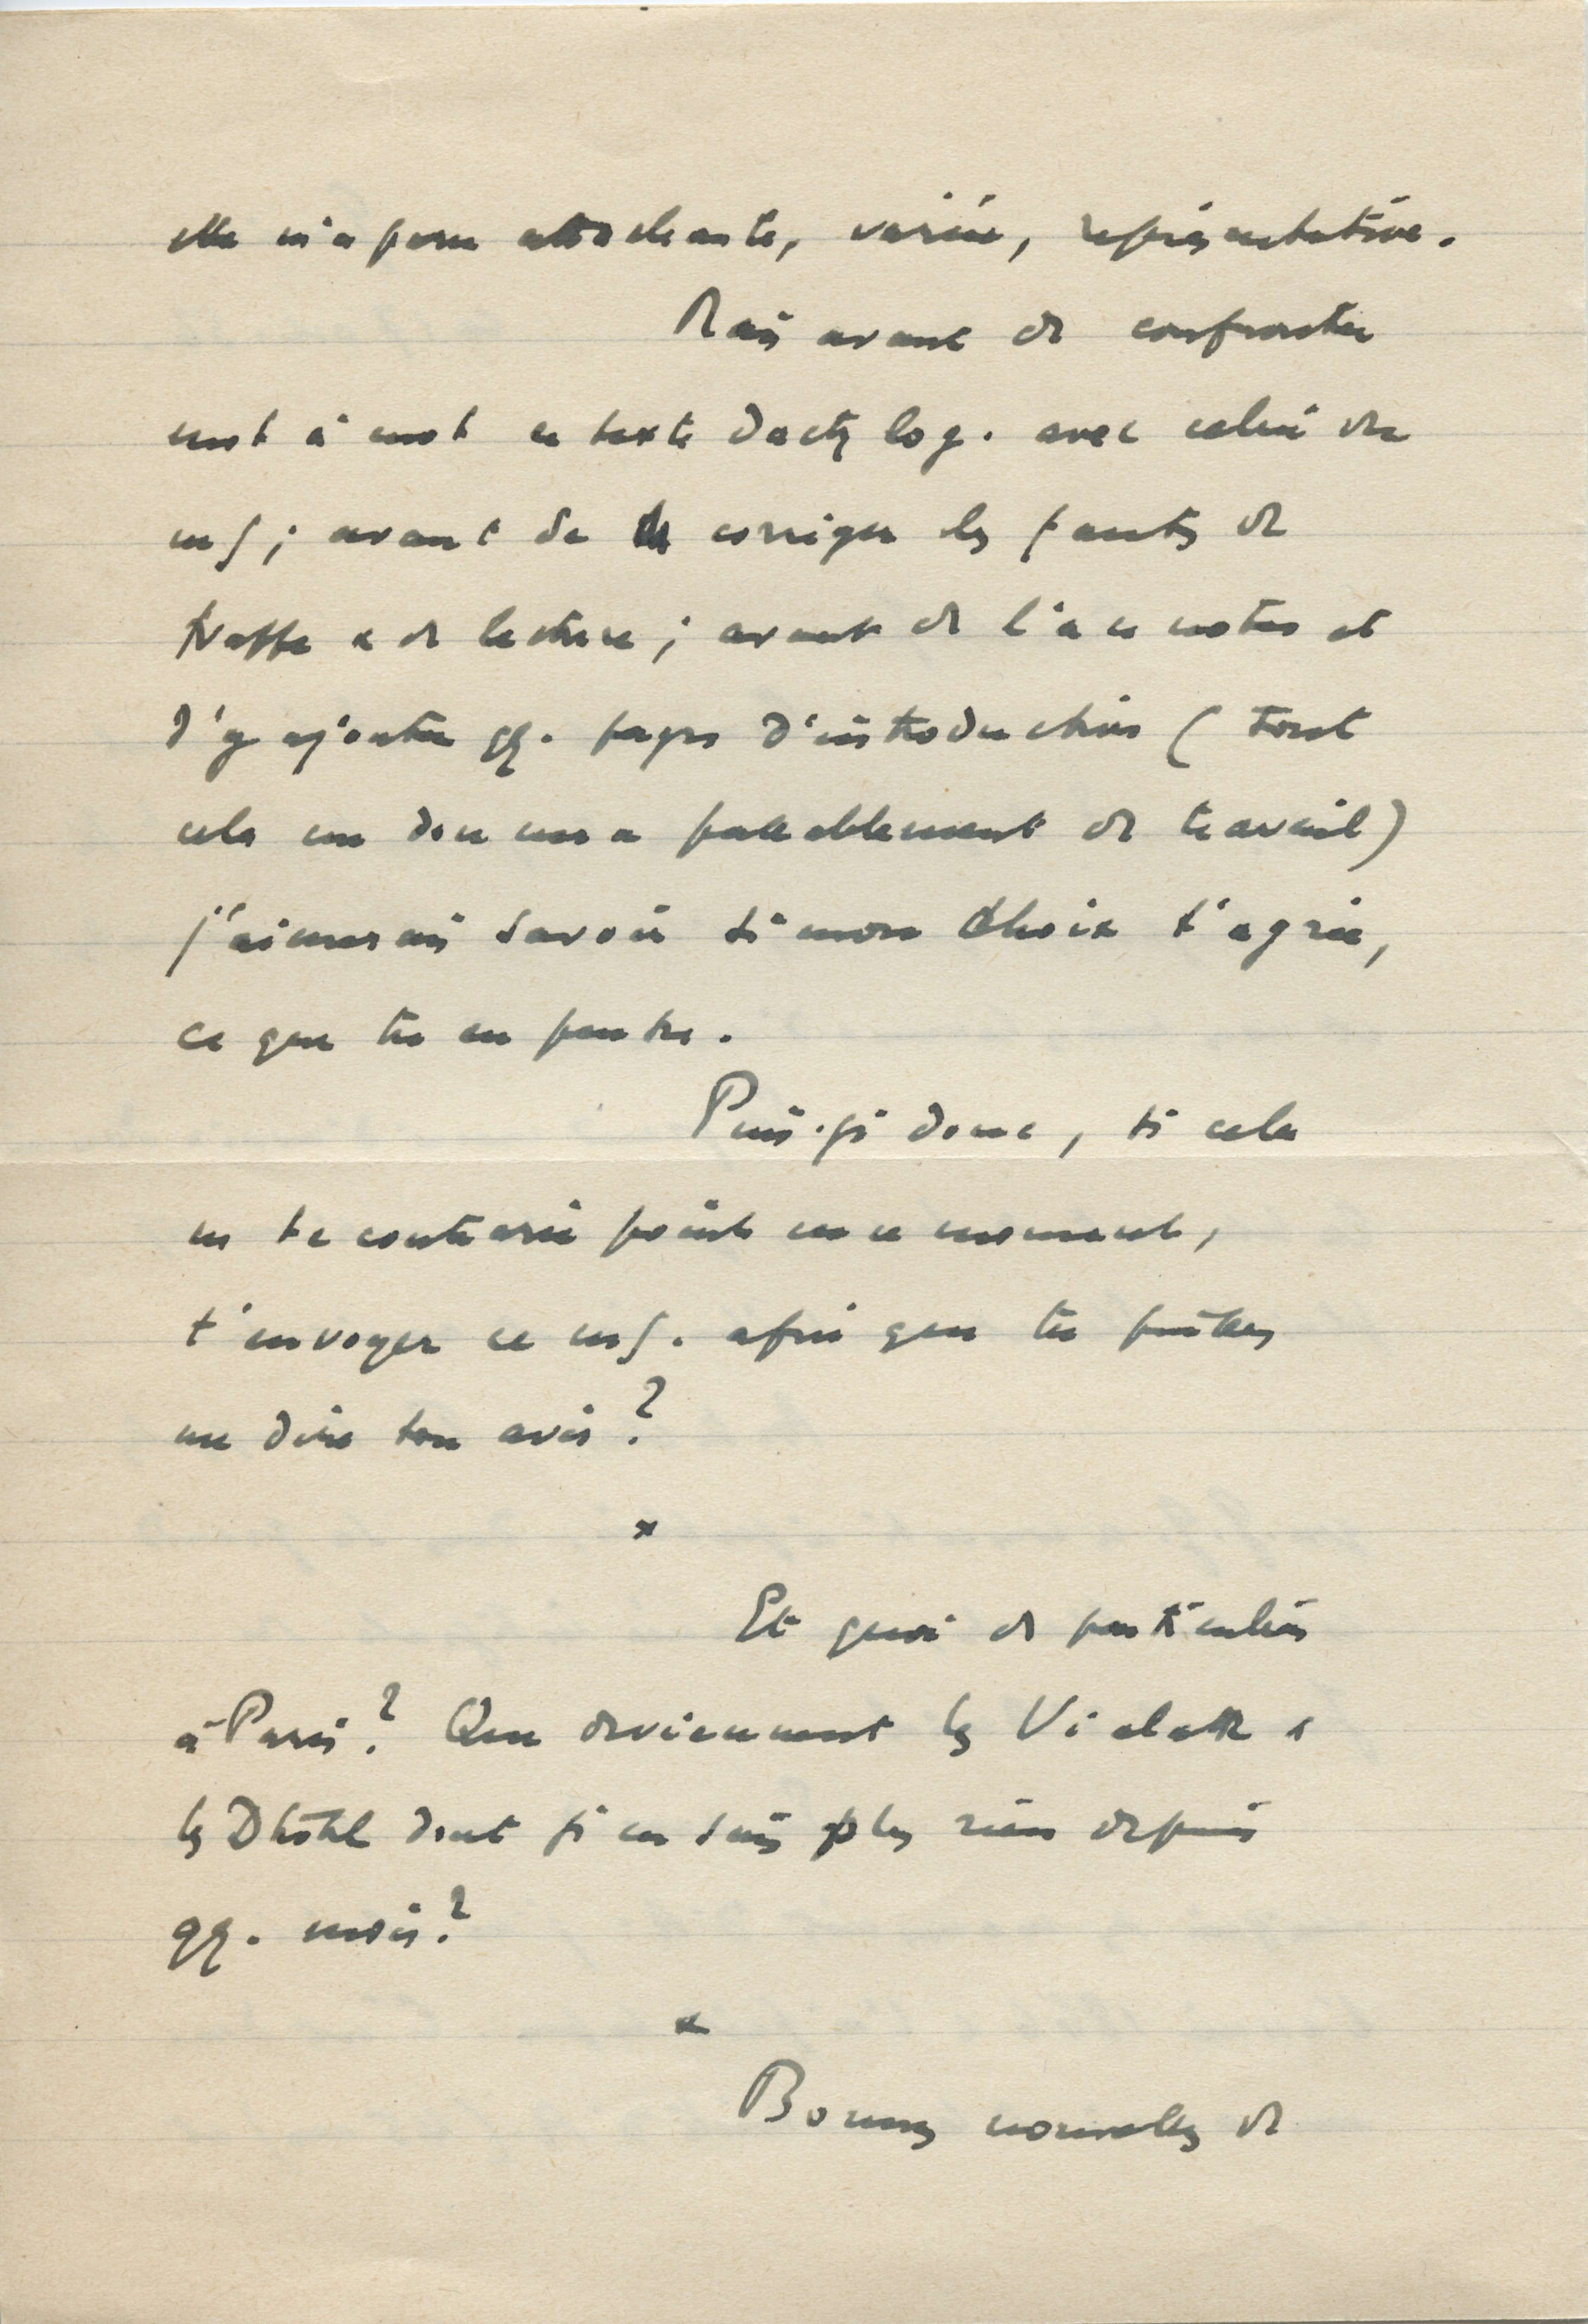 elle m'a paru attachante, variée, représentative.
Mais avant de confronter
mot à mot ce texte dactylog. avec celui du
ms ; avant de corriger les fautes de
frappe & de lecture ; avant de l'annoter et
d'y ajouter qq. pages d'introduction ( tout
cela me donnera passablement de travail)
j'aimerais savoir si mon choix t'agrée,
ce que tu en penses.
Puis-je donc, si cela
ne te contrarie point en ce moment,
t'envoyer ce ms. afin que tu puisses
me dire ton avis ?
*
Et quoi de particulier
à Paris ? Que deviennent les Vialatte &
les Dhôtel dont je ne sais plus rien depuis
qq. mois ?
*
Bonnes nouvelles de